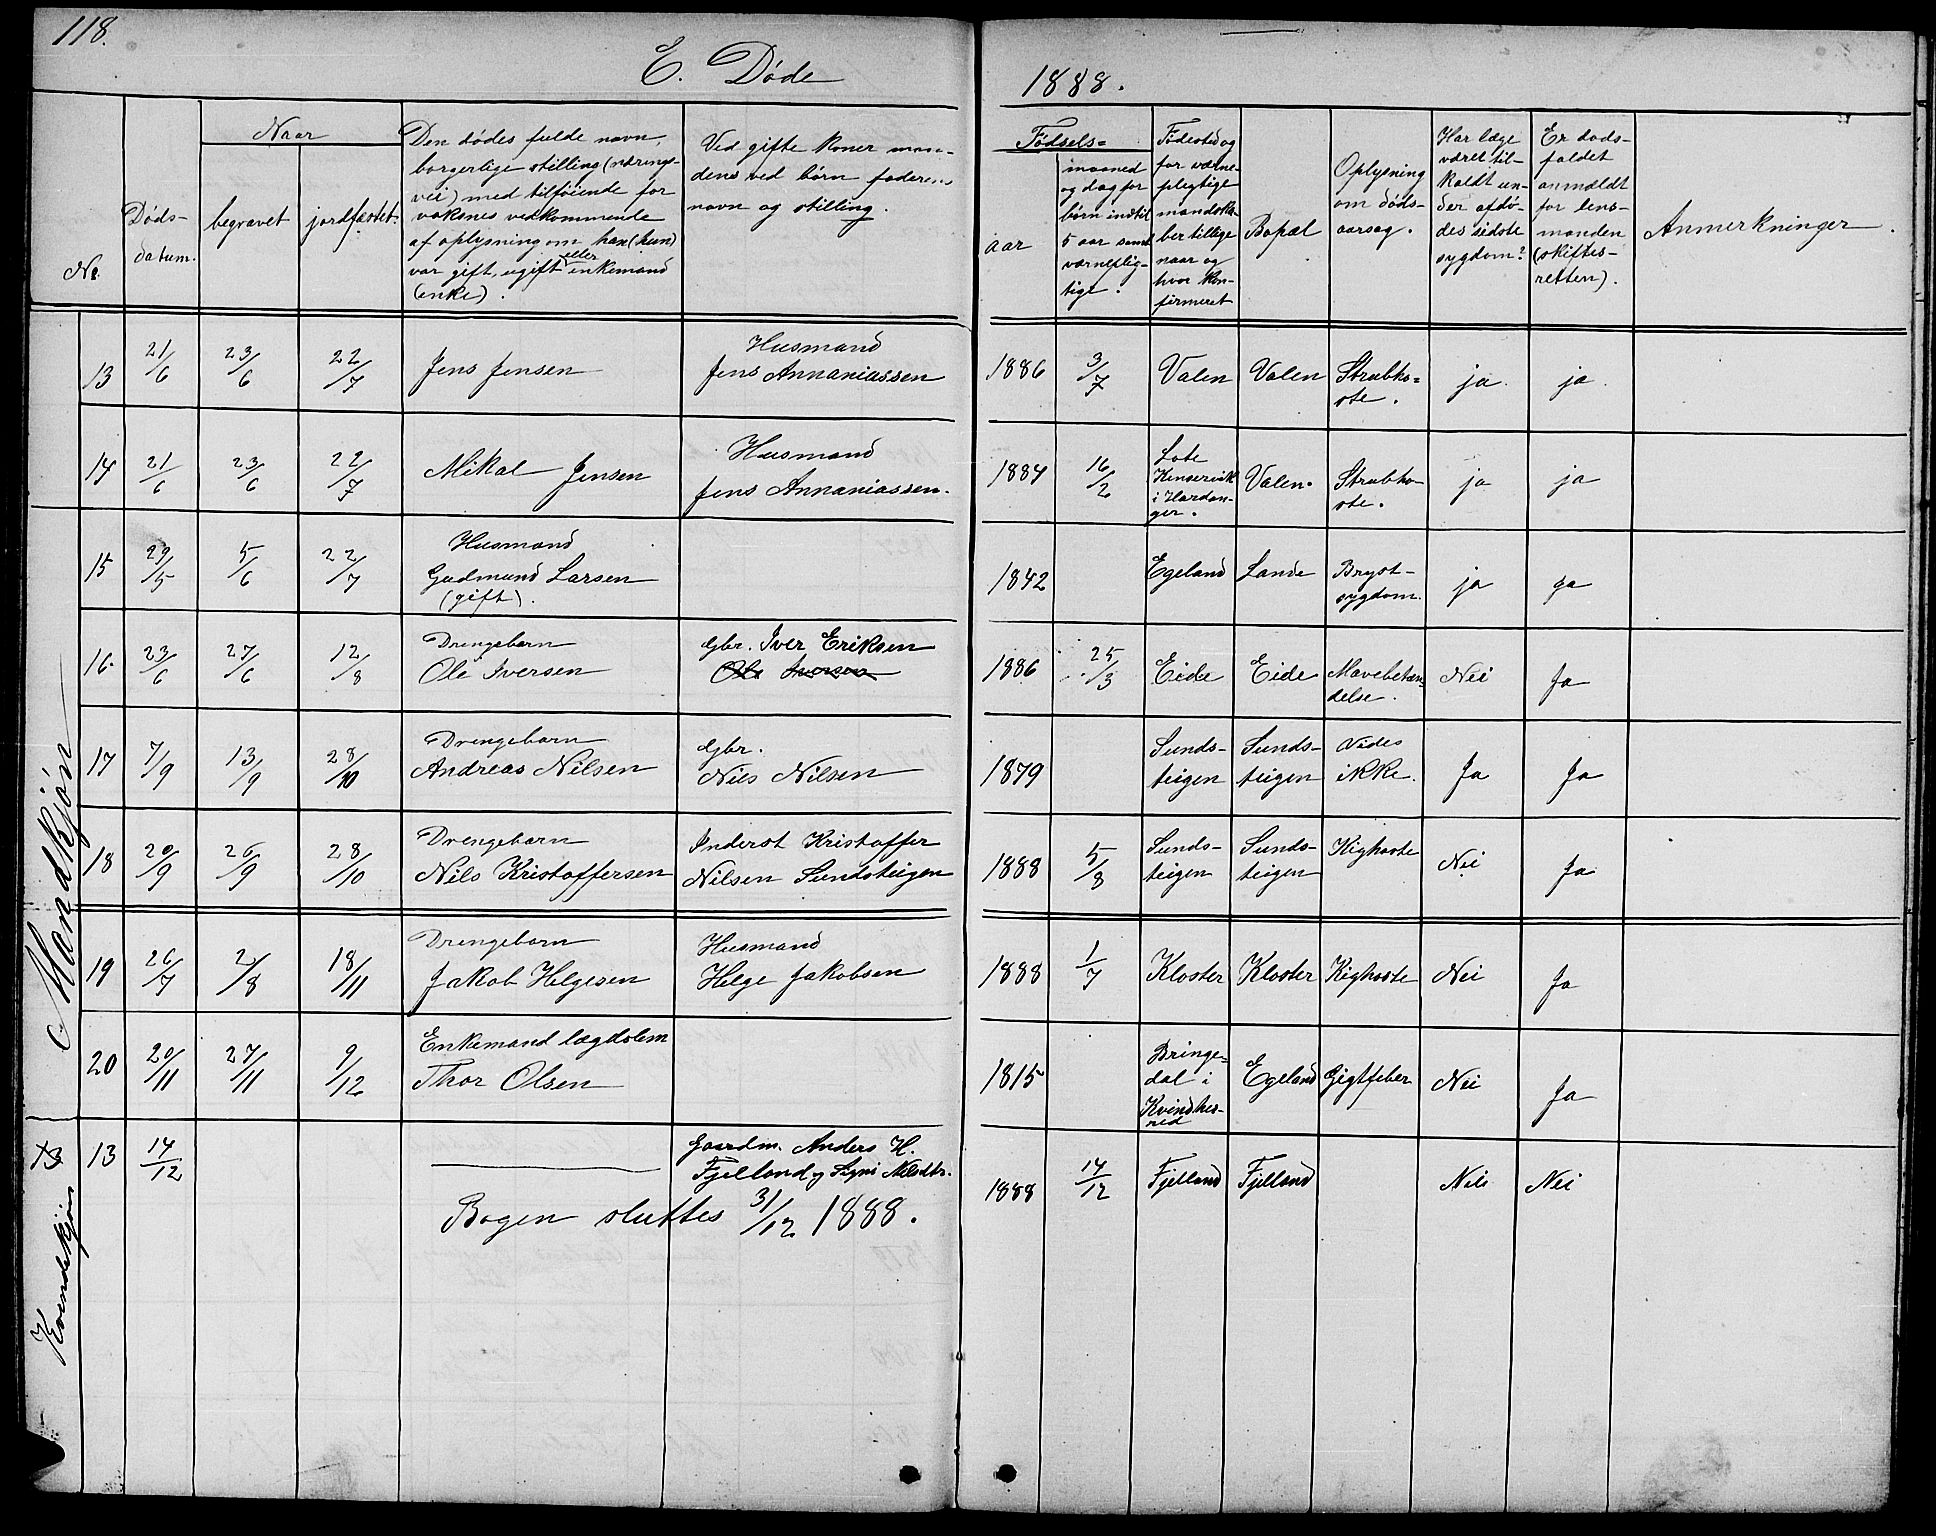 118.
E. Døde
1888.
No.
Døds-
datum.
Naar
begravet
jordfæstet.
Den dødes fulde navn,
borgerlige stilling (nærings-
vei) med tilføiende for
voksnes vedkommende
af oplysning om han (hun)
var gift, ugift eller enkemand
(enke).
Ved gifte koner man-
dens ved børn faderens
navn og stilling.
Fødsels=
aar
maaned
og dag for
børn indtil
5 aar samt
værneplig-
tige.
Fødested og
for værne-
plegtige
mandskа-
ber tillige
naar og
hvor kon-
firmeret
Bopæl
Oplysning
om døds-
aarsag.
Har læge
været til-
kaldt un-
der afdø-
des sidste
sygdom?
Er døds-
faldet
anmældt
for lens-
manden
(skiftes-
retten).
Anmerkninger.
Mandkjøn
13 21/6 23/6 22/7 Jens Jensen Husmand
Jens Annaniassen 1886 3/7 Valen Valen Strubho=
ste. ja. ja.
14 21/6 23/6 22/7 Mikal Jensen Husmand
Jens Annaniassen. 1884 16/2 Lote
Kinservik
i Hardan-
ger. Valen. Strubho-
ste. ja ja
15 29/5 5/6 22/7 Husmand
Gudmund Larsen
(gift). 1842 Egeland Lande Bryst-
sygdom. ja ja
16. 23/6 27/6 12/8 Drengebarn
Ole Iversen Gbr. Iver Eriksen
Ole Iversen 1886 25/3 Eide Eide Mavebetæn=
delse. Nei Ja
17 7/9 13/9 28/10 Drengebarn
Andreas Nilsen Gbr.
Nils Nilsen 1879 Sunds-
teigen Sunds-
teigen Vides
ikke. Ja Ja
18 20/9 26/9 28/10 Drengebarn
Nils Kristoffersen Inderst Kristoffer
Nilsen Sundsteigen 1888 5/8 Sunds-
teigen Sunds-
teigen Kighoste Nei Ja
19 26/7 2/8 18/11 Drengebarn
Jakob Helgesen Husmand
Helge Jakobsen 1888 1/7 Kloster Kloster Kighoste Nei Ja
20 20/11 27/11 9/12 Enkemand lægdslem
Thor Olsen 1815 Bringe=
dal i
Kvindher-
red Egeland Gigtfeber Nei Ja
Kvindekjøn
13 13 14/12 Gaardm. Anders H.
Fjelland og Signi Nilsdtr. 1888 14/12 Fjelland Fjelland Nei Nei
Bogen sluttes 31/12 1888.